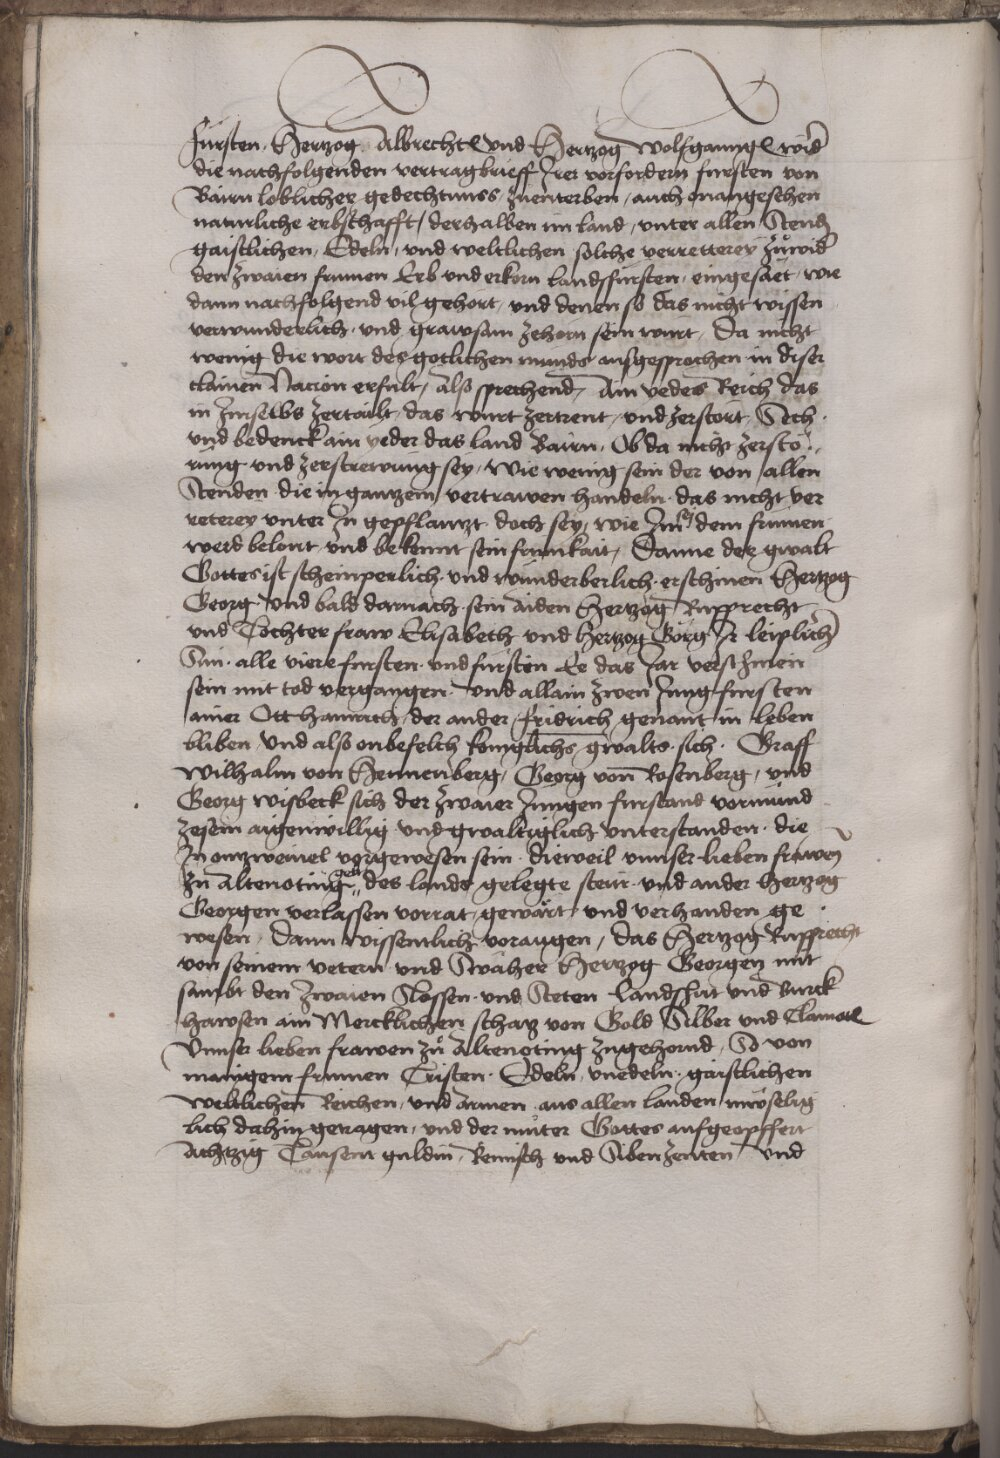 fürsten. Hertzog Albrecht und Hertzog Wolfganng wid
die nachfolgenden vertragbrieff Irer vorfordern fursten von
Bairn loblicher gedechtnuss, zuenterben, auch onangesehen
naturliche erbschafft, derhalben im land, unter allen Stend
gaistlichen, Edeln, und weltlichen solche verretterey zuwid
den zwaien frumen Erb und erkorn landsfursten, eingesäet, wie
dann nachfolgend vil gehort, und denen so das nicht wissen
verwunderlich, und grawsam zehorn sein wurt, Da nicht
wenig die wort des gotlichen munds ausgesprochen in diser
clainen Nacion erfult, also sprechend, Ain yedes Reich das
in Imselbs zertailt, das wurt zertrent, und zerstort, Sech
und bedenck ain yeder das land Bairn, Ob da nicht zersto
rung und zerstrewung sey, Wie wenig sein der von allen
Stenden die in gantzem vertrawen handeln, das nicht ver
reterey unter In gepflantzt doch sey, wie Im dem frumen
werd belont und bekennt sein frumkait, Danne der gwalt
Gottes ist scheinperlich und wunderberlich erschinen Hertzog
Georg und bald darnach sein aiden Hertzog Rupprecht
und Tochter fraw Elisabeth und Hertzog Görg Ir leiplich
Sun. alle viere fursten und fürsten Ee das Jar verschinen
sein mit tod vergangen. Und allain zwen Jung fursten
ainer Ott hainrich, der ander fridrich genant in leben
bliben, Und also onbefelch koniglichs gwalts sich. Graff
Wilhalm von Hennenberg, Georg von Rosenberg, und
Georg wisbeck sich der zwaier Jungen furstand vormund
zesein aigenwillig und gwaltiglich unterstanden. die
In onzweivel vorgewesen sein. dieweil unnser lieben frawen
zu Altenoting gelt, des lands gelegte steur und ander Hertzog
Georgen verlassen vorrat, gewärt und verhanden ge
wesen. Dann wissentlich voraugen, das Hertzog Rupprecht
von seinem vetern und Swäher Hertzog Georgen mit
sambt den zwaien Slossen und Steten Landshut und Burck
hawsen ain Mercklichen schatz von Gold Silber und Clainott
Unnser lieben frawen zu Altenoting zugehornd, So von
manigem frumen Cristen. Edeln, unedeln, gaistlichen
weltlichen Reichen, und armen aus allen landen müselig
lich dahin getragen, und der muter Gottes aufgeopffert
Achtzig Tausent guldin, Reinisch und Siben zenten und